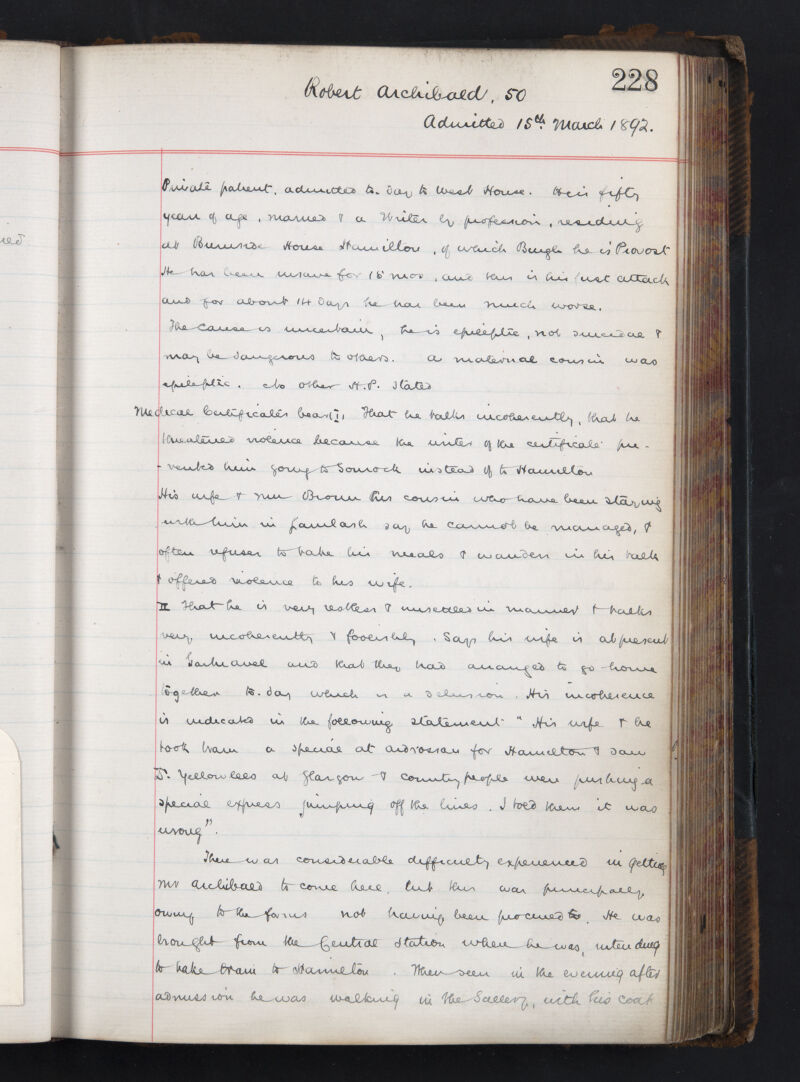 228
Robert Archibald, 50
Admitted 15th March 1892.
Private patient, admitted to-day to West House. He is fifty
years of age, married & a Writer by profession, residing
at Burnside House Hamilton, of which Burgh he is Provost
He has been insane for 15 mos, and this is his first attack
and for about 14 days he has been much worse.
The cause is uncertain, he is epileptic, not suicidal &
may be dangerous to others. A maternal cousin was
epileptic. No other H.P. stated
Medical Certificates bear (I, That he talks incoherently, that he
threatened violence because the writer of the certificate pre-
-vented him going to Gourock instead of to Hamilton
His wife & Mr Brown his cousin who have been staying
with him in Lamlash say he cannot be managed, &
often refuses to take his meals & wanders in his talk
& offered violence to his wife.
II That he is very restless & unsettled in manner & talks
very incoherently & foolishly. Says his wife is at present
in Gartnavel and that they had arranged to go home
together to-day which is a delusion. His incoherence
is indicated in the following statement "His wife & he
took train a special at Ardrossan for Hamilton & saw
Dr. Yellowlees at Glasgow & country people were pushing a
special express jumping off the lines. I told them it was
wrong".
There was considerable difficulty experienced in getting
Mr Archibald to come here, but this was principally
owing to the forms not having been procured. He was
brought from the Central Station where he was, intending
to take train to Hamilton. When seen in the evening after
admission he was walking in the Gallery, with his coat